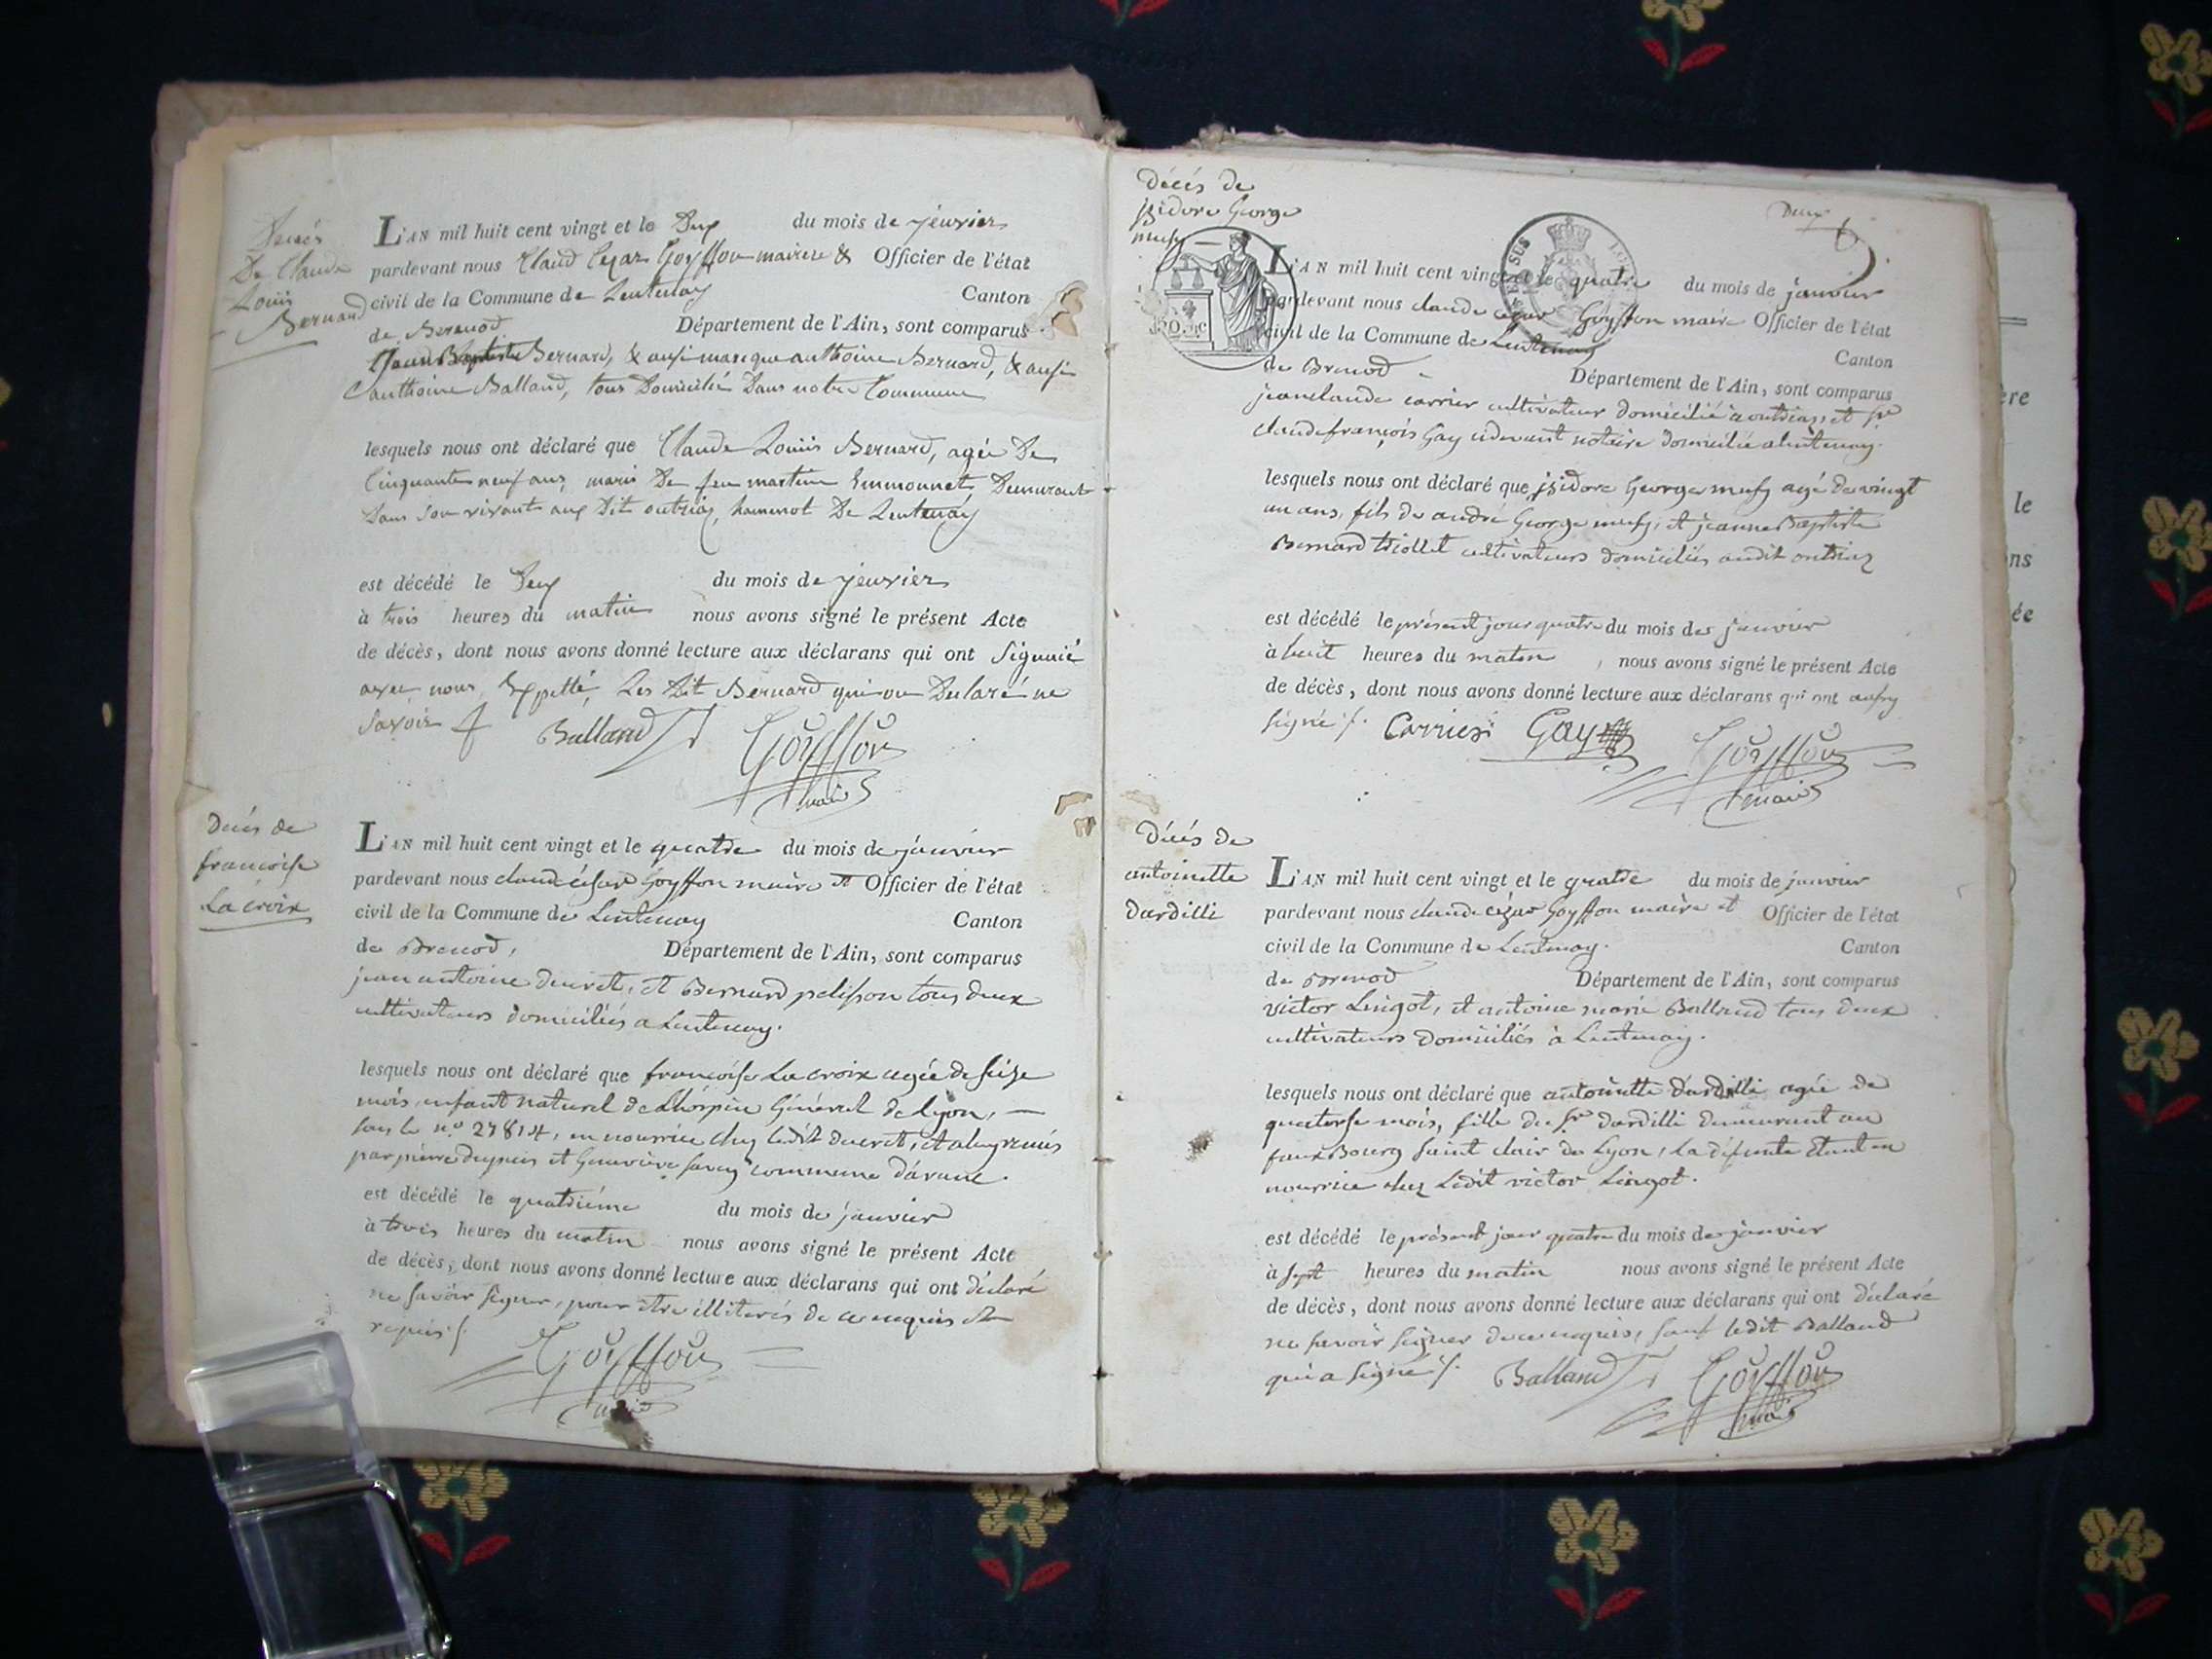 Decès
De Claude
Louis
Bernard
L'AN mil huit cent vingt et le Deux du mois de jenvier
pardevant nous Claud Cezar Goyffon maire & Officier de l'état
civil de la Commune de Lentenay Canton
de Brenod Département de l'Ain, sont comparus
Bernard, & ausi marque anthoine Bernard, & ausi
anthoine Balland, tous Domicilié Dans notre Commune
lesquels nous ont déclaré que Claude Louis Bernard, agée De
Cinquante neuf ans, maris De feu martine Emmonnet Demurant
Dans son vivant aux Dit outriaz, hammot De Lentenay
est décédé le Deux du mois de jenvier
à trois heures du matin nous avons signé le présent Acte
de décès, dont nous avons donné lecture aux déclarans qui ont
avec nous, Les Dit Bernard qui on Declaré ne
savoir Balland Goÿffon
maire
décès de
francoise
La croix
L'AN mil huit cent vingt et le quatre du mois de janvier
pardevant nous claude césar Goyffon maire et Officier de l'état
civil de la Commune de Lentenay Canton
de Brenod, Département de l'Ain, sont comparus
jean antoine ducret, et Bernard pelisson tous deux
cultivateurs domiciliés a Lentenay.
lesquels nous ont déclaré que francoise La croix agée de seize
mois, enfant naturel de Général de Lyon, —
sous le n.o 27814, en nourrice chez ledit ducret,
par pierre et Geneviève commune
est décédé le quatrième du mois de janvier
à trois heures du matin nous avons signé le présent Acte
de décès, dont nous avons donné lecture aux déclarans qui ont déclaré
ne savoir signer, pour être illiterés de ce enquis et
requis /. Goÿffon
maire
décés de
isidore George
mufy
Deux
L'AN mil huit cent vingt et le quatre du mois de janvier
pardevant nous claude cezar Goyffon maire Officier de l'état
civil de la Commune de Lentenay Canton
de Brenod Département de l'Ain, sont comparus
jeanclaude carrier cultivateur domicilié à outriaz, et sr
claudefrançois Gay cidevant notaire domicilié alentenay.
lesquels nous ont déclaré que isidore George mufy agé de vingt
un ans, fils de andré George mufy, et jeanne Baptiste
Bernard triollet cultivateurs domiciliés audit outriaz
est décédé le présent jour quatre du mois de janvier
à huit heures du matin, nous avons signé le présent Acte
de décès, dont nous avons donné lecture aux déclarans qui ont
signé /. Carrier Gay Goÿffon
maire
décés de
antoinette
dardilli
L'AN mil huit cent vingt et le quatre du mois de janvier
pardevant nous claude cézar Goyffon maire et Officier de l'état
civil de la Commune de Lentenay. Canton
de Brenod Département de l'Ain, sont comparus
victor Lingot, et antoine marie Balland tous deux
cultivateurs domiciliés à Lentenay.
lesquels nous ont déclaré que antoinette dardilli agée de
quatorse mois, fille du sr dardilli demeurant au
fauxBourg saint clair de Lyon, La défunte étant en
nourrice chez Ledit victor Lingot.
est décédé le présent jour quatre du mois de janvier
à sept heures du matin nous avons signé le présent Acte
de décès, dont nous avons donné lecture aux déclarans qui ont déclaré
ne savoir signer de ce enquis, sauf ledit Balland
qui a signé /. Balland Goÿffon
maire
ère
le
ns
ée